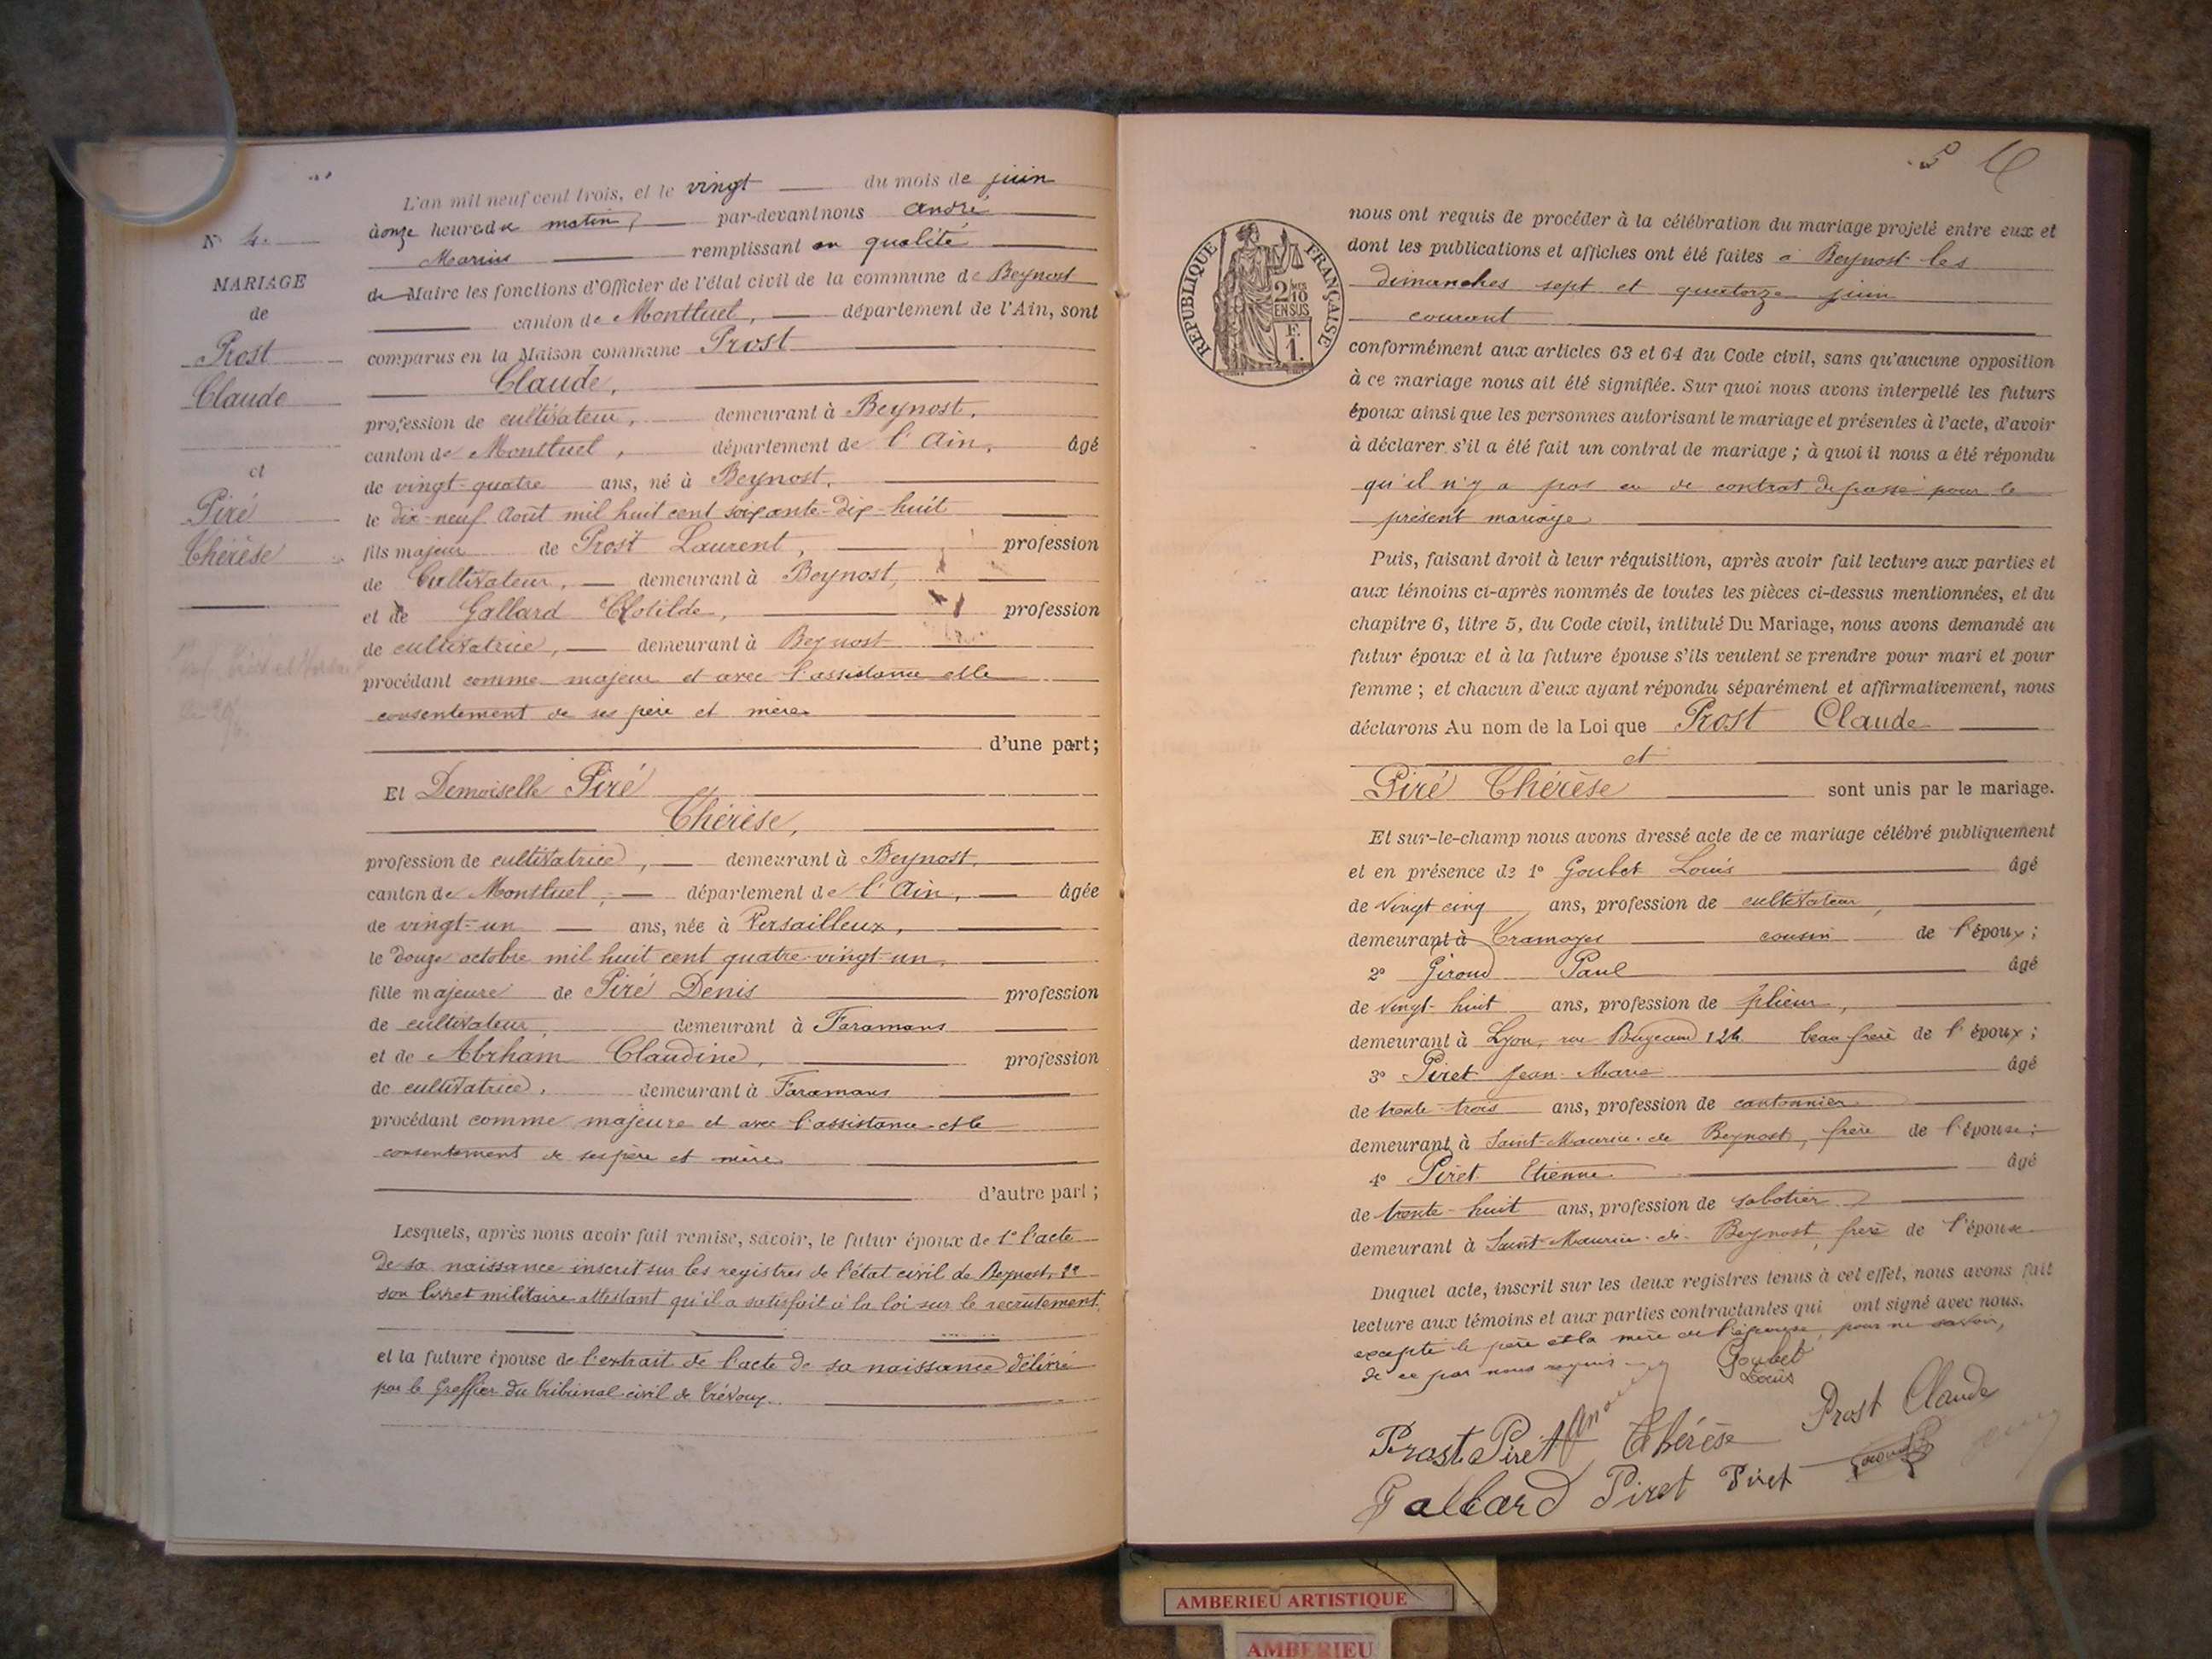 N° 4.
MARIAGE
de
Prost
Claude
et
Piré
Thérèse
L'an mil neuf cent trois, et le vingt du mois de juin
à onze heures du matin, par-devant nous André
Marius remplissant en qualité
de Maire les fonctions d'Officier de l'état civil de la commune de Beynost
canton de Montluel, département de l'Ain, sont
comparus en la Maison commune Prost
Claude,
profession de cultivateur, demeurant à Beynost,
canton de Montluel, département de l'Ain, âgé
de vingt-quatre ans, né à Beynost,
le dix-neuf Août mil huit cent soixante-dix-huit
fils majeur de Prost Laurent, profession
de Cultivateur, demeurant à Beynost,
et de Gallard Clotilde, profession
de cultivatrice, demeurant à Beynost
procédant comme majeur et avec l'assistance et le
consentement de ses père et mère
d'une part;
Et Demoiselle Piré
Thérèse,
profession de cultivatrice, demeurant à Beynost,
canton de Montluel, département de l'Ain, âgée
de vingt-un ans, née à Versailleux,
le douze octobre mil huit cent quatre-vingt-un,
fille majeure de Piré Denis profession
de cultivateur, demeurant à Faramans
et de Abrham Claudine, profession
de cultivatrice, demeurant à Faramans
procédant comme majeure et avec l'assistance et le
consentement de ses père et mère
d'autre part;
Lesquels, après nous avoir fait remise, savoir, le futur époux de 1° l'acte
de sa naissance inscrit sur les registres de l'état civil de Beynost, 2°
son livret militaire attestant qu'il a satisfait à la loi sur le recrutement,
et la future épouse de l'extrait de l'acte de sa naissance délivré
par le Greffier du tribunal civil de Trévoux.
5
RÉPUBLIQUE FRANÇAISE
2/10
EN SUS
F.
1.
nous ont requis de procéder à la célébration du mariage projeté entre eux et
dont les publications et affiches ont été faites à Beynost les
dimanches sept et quatorze juin
courant
conformément aux articles 63 et 64 du Code civil, sans qu'aucune opposition
à ce mariage nous ait été signifiée. Sur quoi nous avons interpellé les futurs
époux ainsi que les personnes autorisant le mariage et présentes à l'acte, d'avoir
à déclarer s'il a été fait un contrat de mariage; à quoi il nous a été répondu
qu'il n'y a pas eu de contrat de passé pour le
présent mariage
Puis, faisant droit à leur réquisition, après avoir fait lecture aux parties et
aux témoins ci-après nommés de toutes les pièces ci-dessus mentionnées, et du
chapitre 6, titre 5, du Code civil, intitulé Du Mariage, nous avons demandé au
futur époux et à la future épouse s'ils veulent se prendre pour mari et pour
femme; et chacun d'eux ayant répondu séparément et affirmativement, nous
déclarons Au nom de la Loi que Prost Claude
et
Piré Thérèse sont unis par le mariage.
Et sur-le-champ nous avons dressé acte de ce mariage célébré publiquement
et en présence de 1° Goubet Louis âgé
de vingt cinq ans, profession de cultivateur,
demeurant à Tramoyes cousin de l'époux;
2° Giroud Paul âgé
de vingt-huit ans, profession de plieur,
demeurant à Lyon, rue Bugeaud 124 beau frère de l'époux;
3° Piret Jean-Marie âgé
de trente-trois ans, profession de cantonnier
demeurant à Saint-Maurice-de Beynost, frère de l'épouse;
4° Piret Etienne âgé
de trente-huit ans, profession de sabotier
demeurant à Saint-Maurice-de-Beynost, frère de l'épouse
Duquel acte, inscrit sur les deux registres tenus à cet effet, nous avons fait
lecture aux témoins et aux parties contractantes qui ont signé avec nous.
excepté le père et la mère de l'épouse, pour ne savoir,
de ce par nous requis
Goubet
Louis
Prost Piret Thérèse Prost Claude
Gallard Piret Piret Giroud
AMBERIEU ARTISTIQUE
AMBERIEU